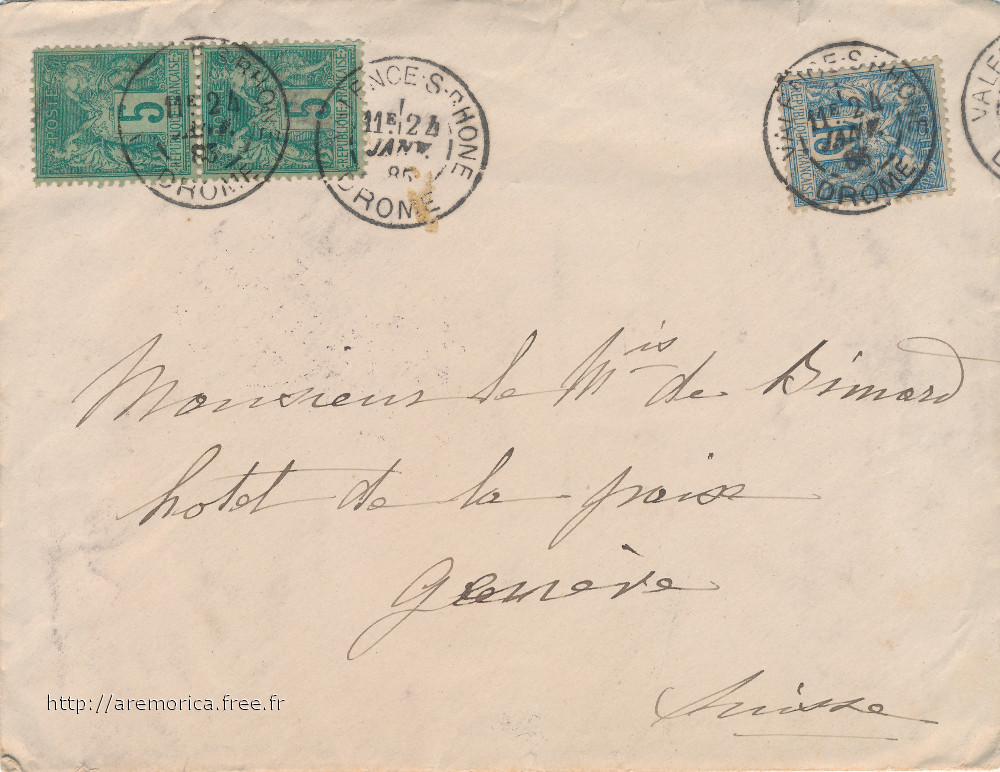 POSTES
5
RÉPUBLIQUE FRANÇAISE
5
RÉPUBLIQUE FRANÇAISE
S-RHONE
11E 24
JANV.
85
DROME
LENCE-S-RHONE
11E 24
JANV.
85
DROME
15
VALENCE-S-RHONE
11E 24
JANV.
85
DROME
VALE
Monsieur le Mis de Bimard
hotel de la paix
Genève
Suisse
http://aremorica.free.fr